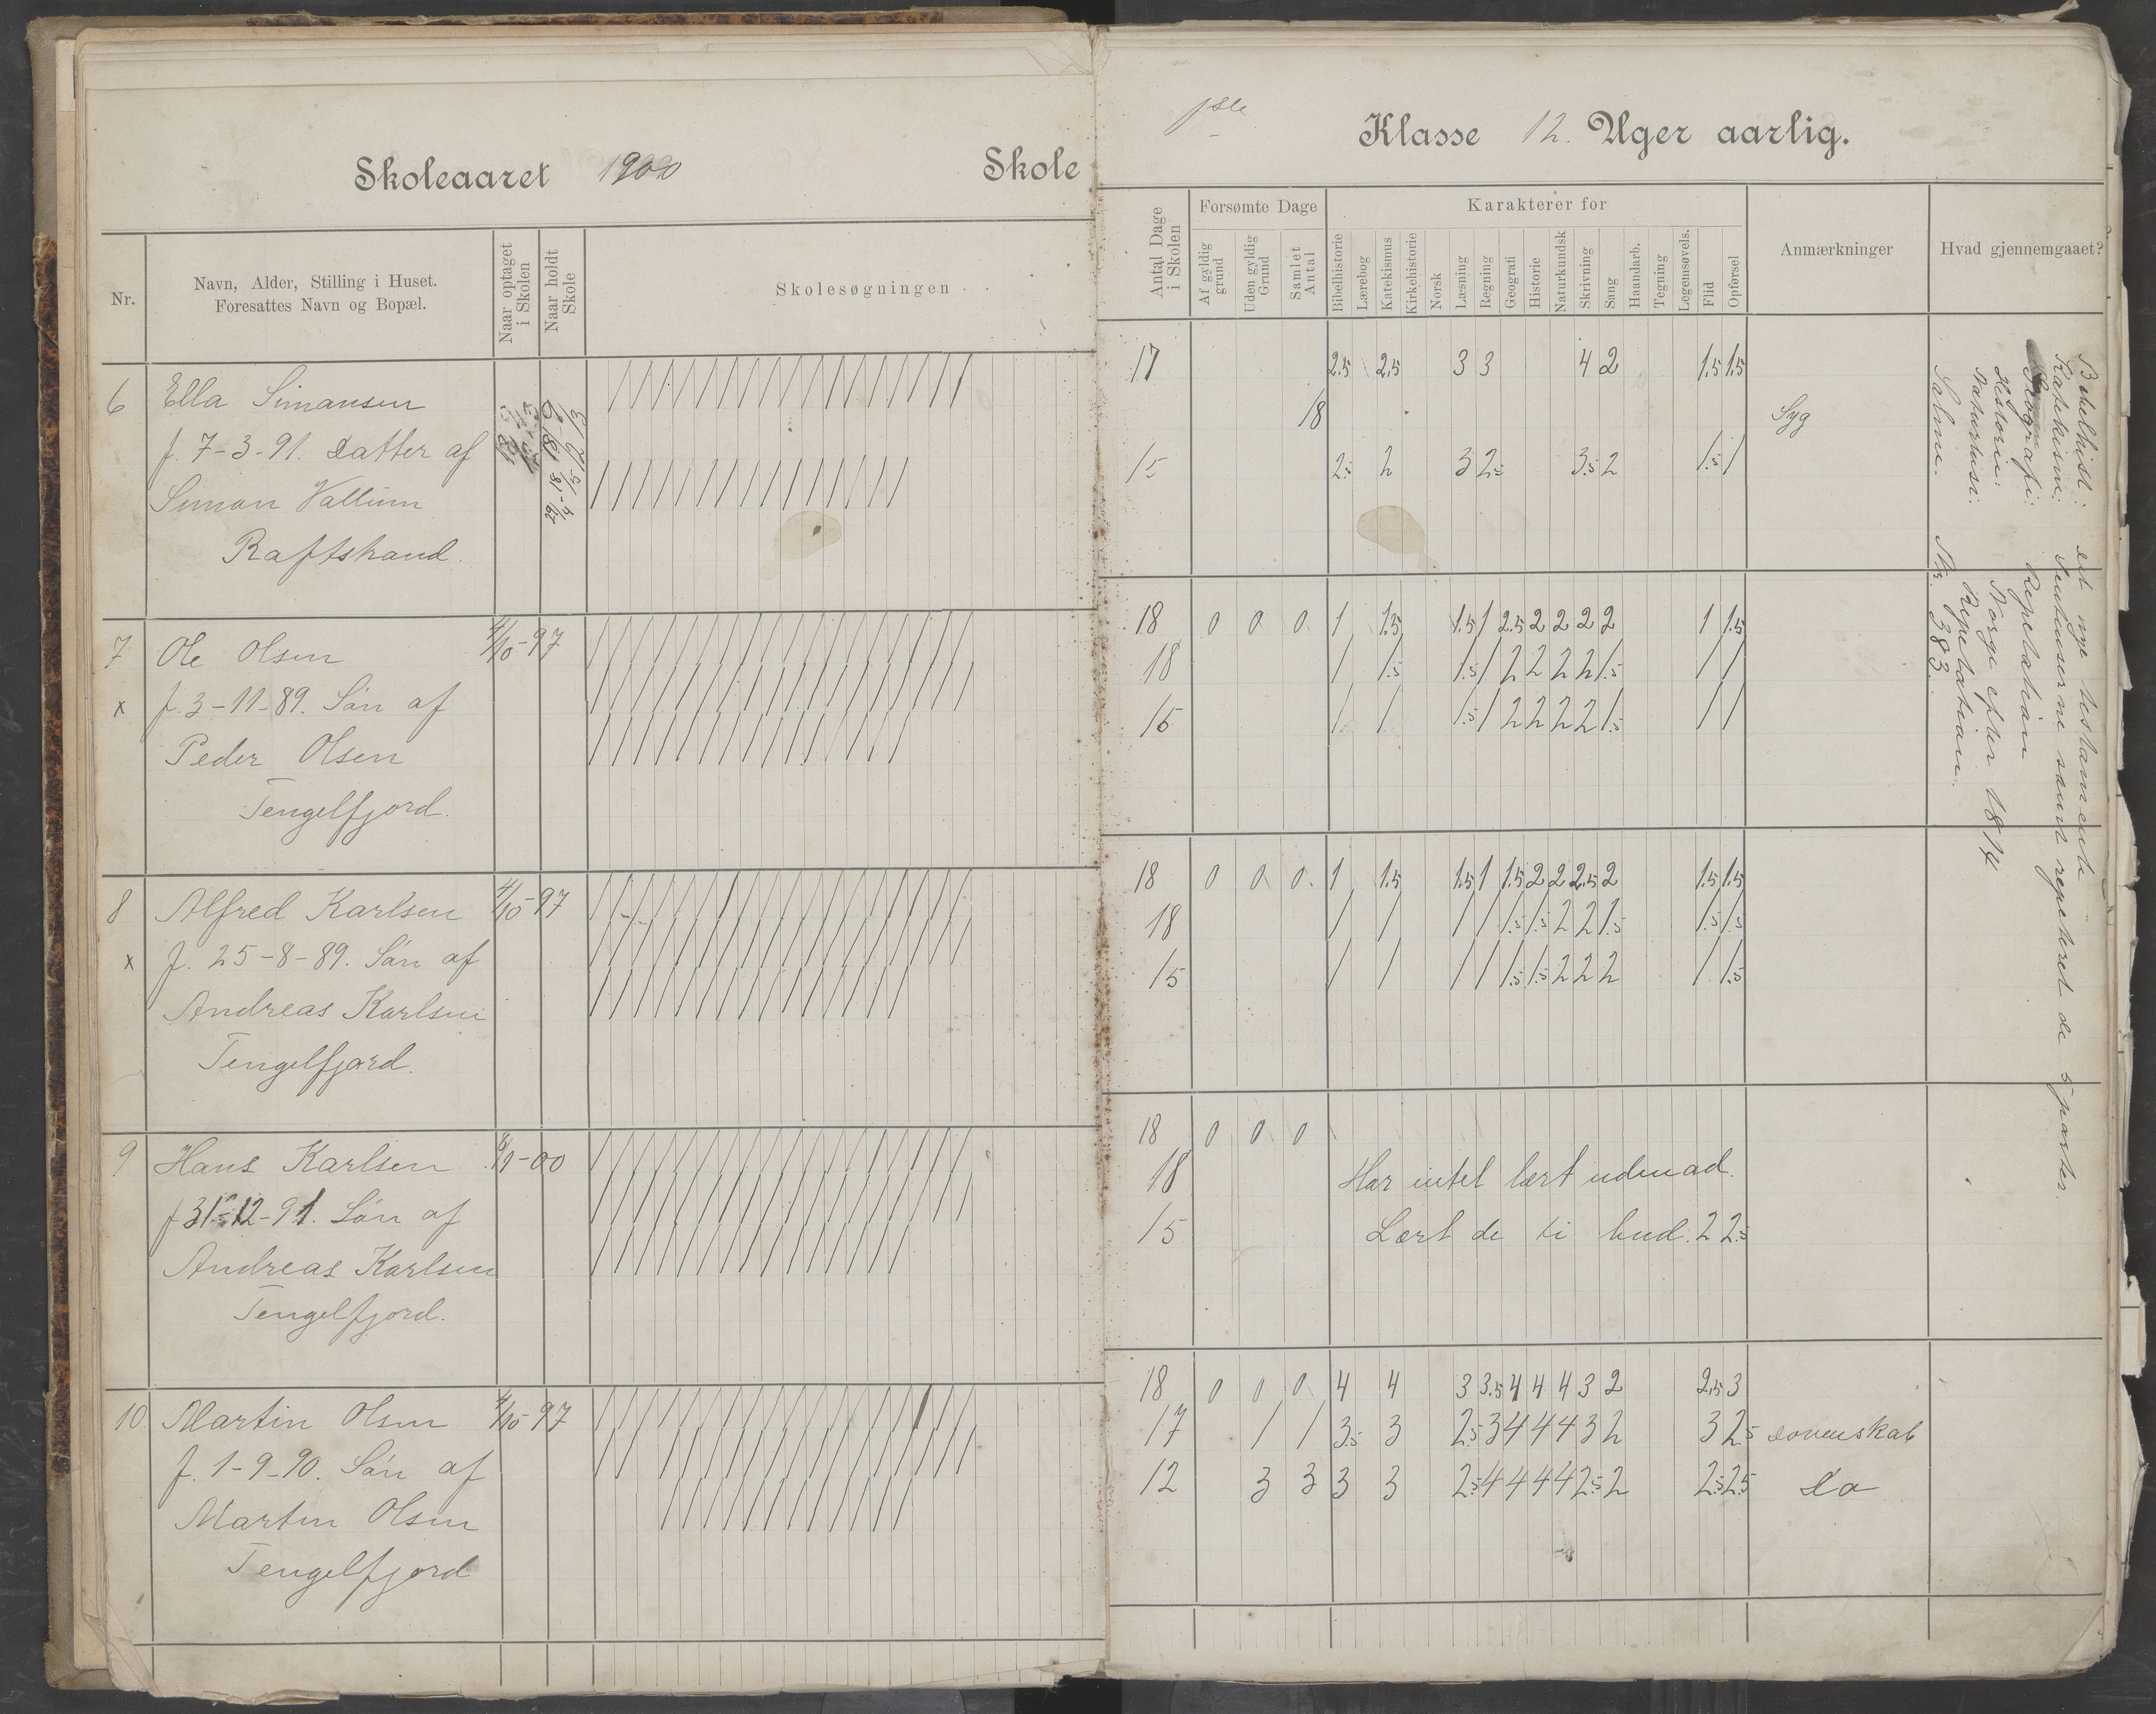 Skoleaaret 1900 Skole
1ste Klasse 12. Uger aarlig.
Nr.
Navn, Alder, Stilling i Huset.
Foresattes Navn og Bopæl.
Naar optaget
i Skolen
Naar holdt
Skole
Skolesøgningen
Antal Dage
i Skolen
Forsømte Dage
Af gyldig
grund
Uden gyldig
Grund
Samlet
Antal
Karakterer for
Bibelhistorie
Lærebog
Katekismus
Kirkehistorie
Norsk
Læsning
Regning
Geografi
Historie
Naturkundsk
Skrivning
Sang
Haandarb.
Tegning
Legemsøvels.
Flid
Opførsel
Anmærkninger
Hvad gjennemgaaet?
6 Ella Simansen
f. 7-3-91. Datter af
Simon Vallum
Raftstrand.
17 2.5 2.5 3 3 4 2 1.5 1.5
18 Syg
15 2.5 2 3 2.5 3.5 2 1.5 1
7 Ole Olsen 4/10-97
x f. 3-11-89. Søn af
Peder Olsen
Tengelfjord.
18 0 0 0 1 1.5 1.5 1 2.5 2 2 2 2 1 1.5
18 1 1.5 1.5 1 2 2 2 2 1.5 1 1
15 1 1 1.5 1 2 2 2 2 1.5 1 1
8 Alfred Karlsen 4/10-97
x f. 25-8-89. Søn af
Andreas Karlsen
Tengelfjord.
18 0 0. 0. 1 1.5 1.5 1 1.5 2 2 2.5 2 1.5 1.5
18 1 1 1 1 1.5 1.5 2 2 1.5 1.5 1.5
15 1 1 1 1 1.5 1.5 2 2 2 1 1.5
9 Hans Karlsen 8/9-00
f 31-12-91. Søn af
Andreas Karlsen
Tengelfjord.
18 0 0 0
18 Har intet lært udenad.
15 Lært de ti bud. 2 2.5
10 Martin Olsen 4/10-97
f. 1-9-90. Søn af
Martin Olsen
Tengelfjord
18 0 0 0 4 4 3 3.5 4 4 4 3 2 2.5 3
17 1 1 3.5 3 2.5 3 4 4 4 3 2 3 2.5 Dovenskab
12 3 3 3 3 2.5 4 4 4 4 2.5 2 2.5 2.5 Do
Bibelhist.: det nye testamente
Katekisme: Sentenserne samt repeteret de 5 parter.
Geografi: Repetation
Historie: Norge efter 1814
Naturhist: Repetation.
Salme. Nr. 383.